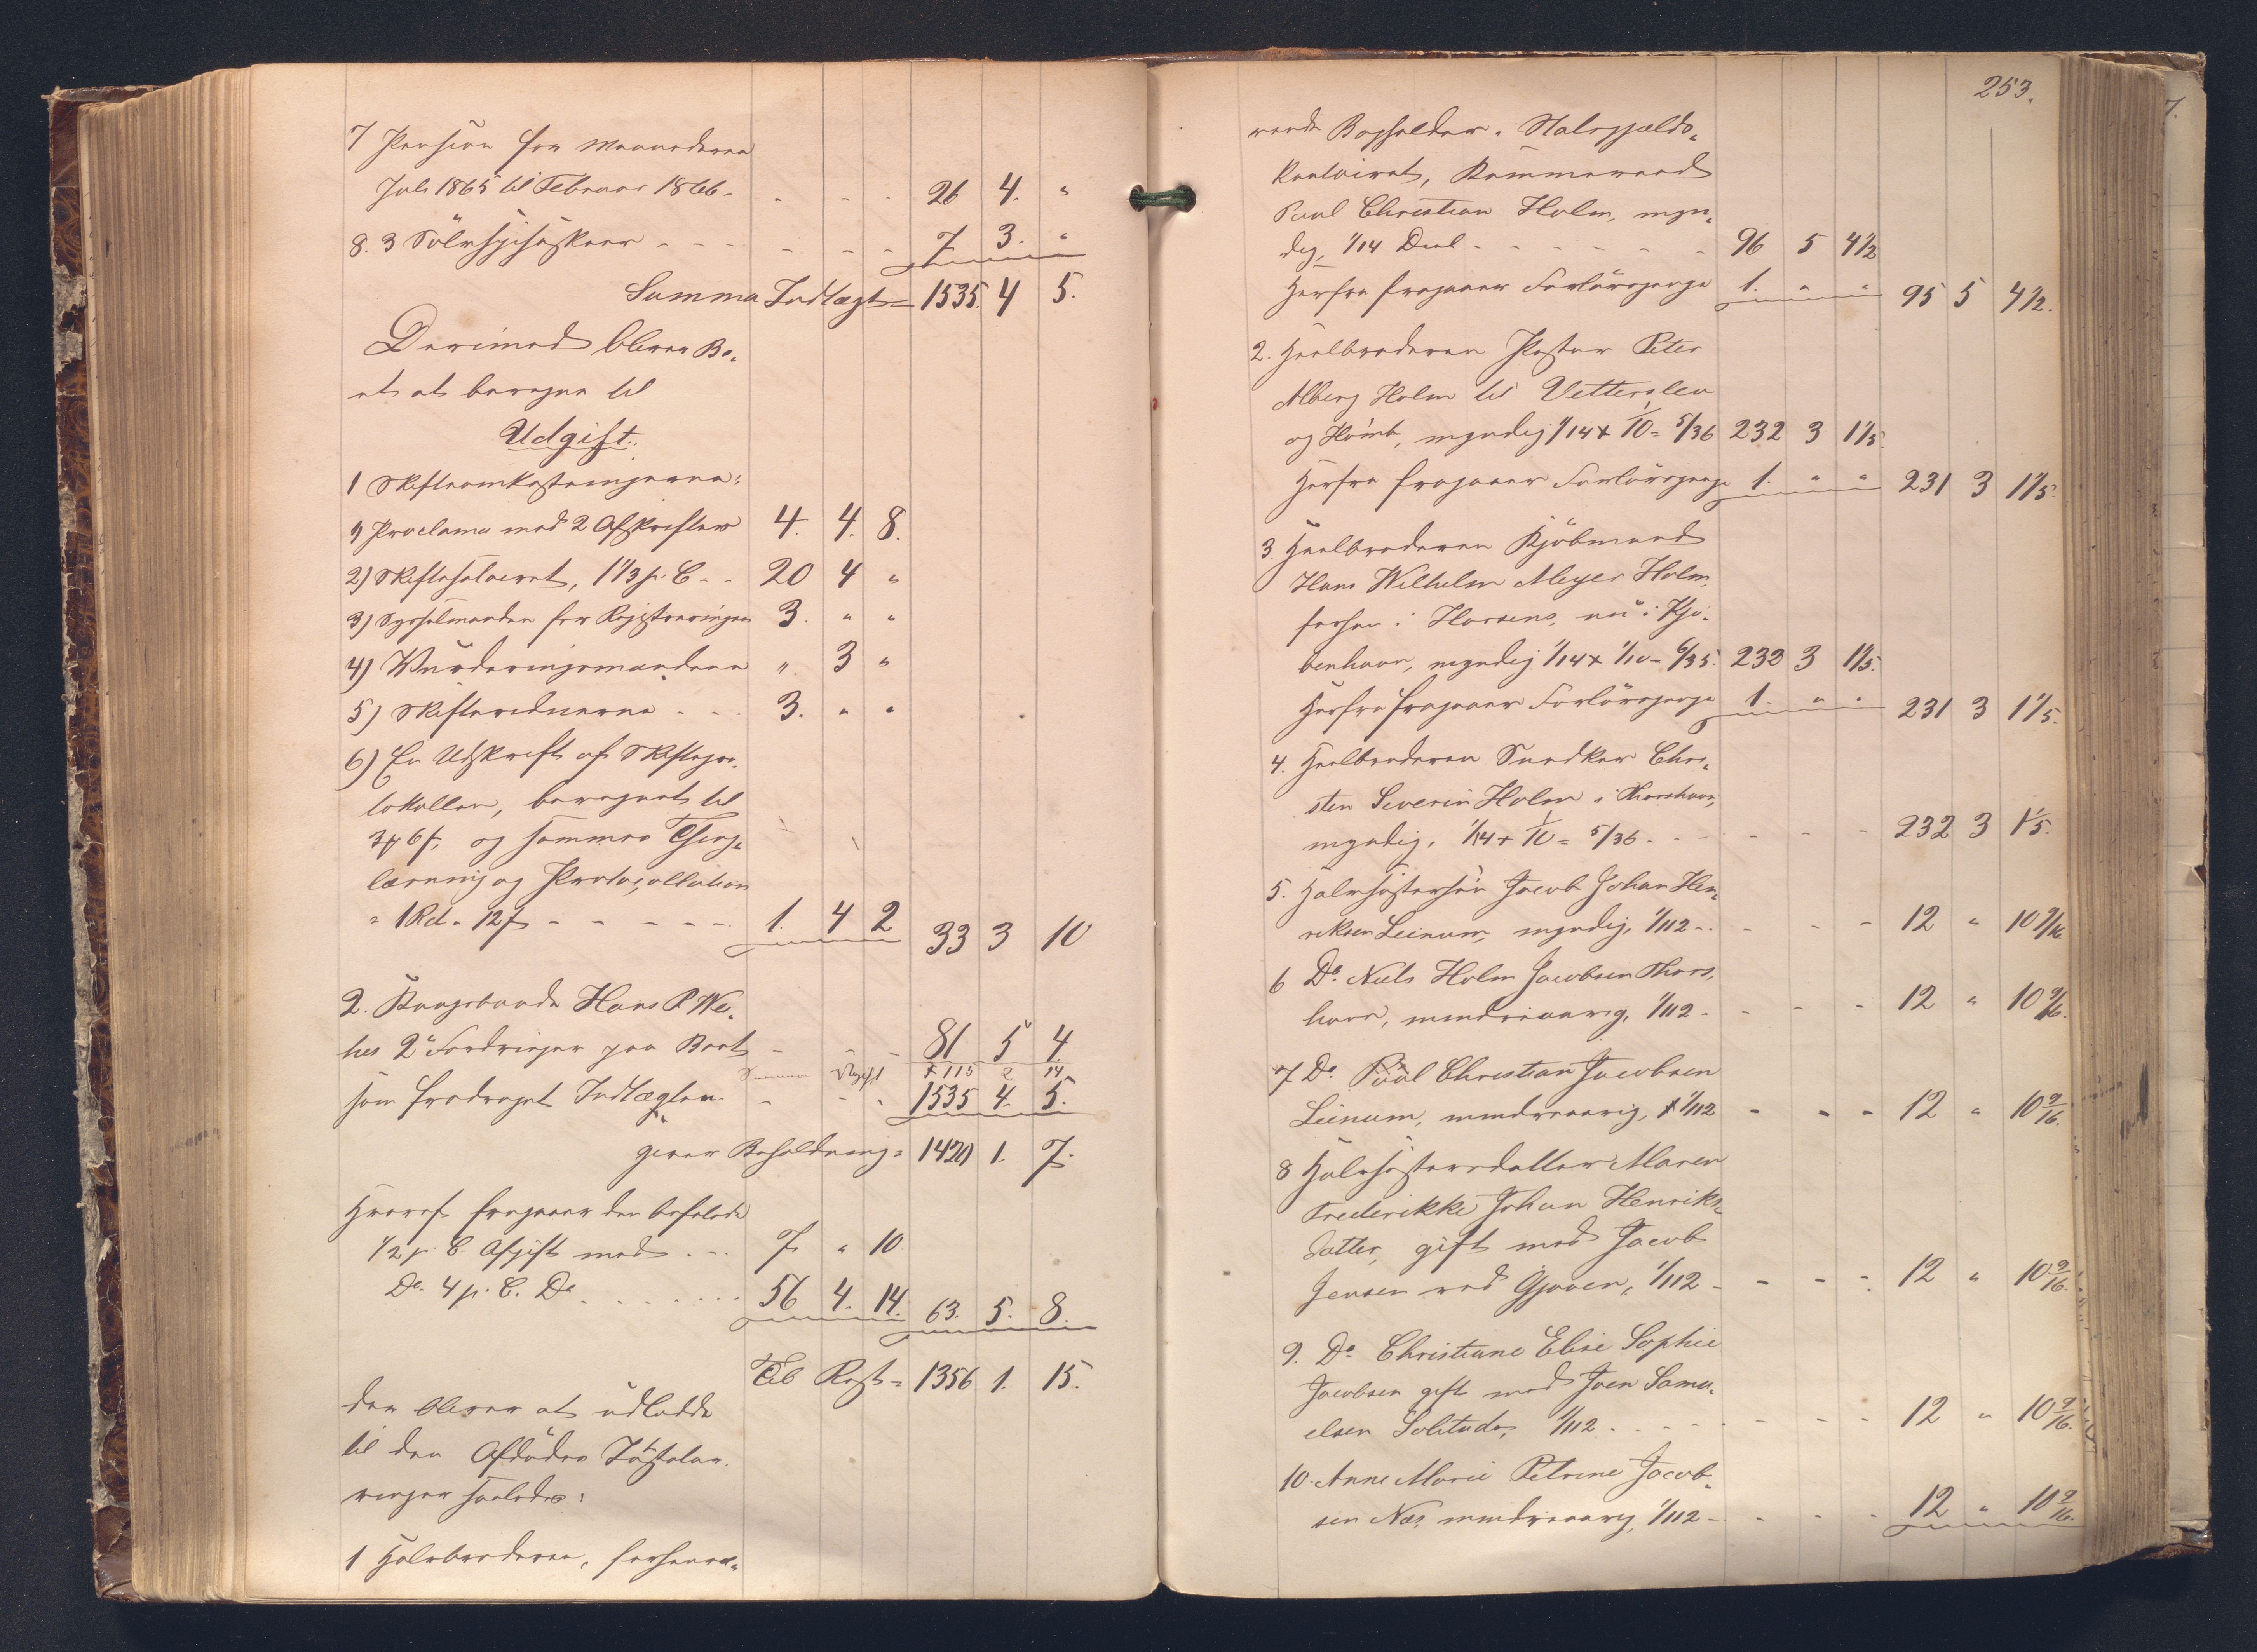 7 Pension for Maanederne
Juli 1865 til Februar 1866 - 26 4. "
8. 3 Sölvspiseskeer - 7 3. "
Summa Indtægt = 1535. 4 5.
Derimod bliver Bo-
et at beregne til
Udgift:
1 Skifteomkostningerne:
1) Proclama med 2 Afskrifter 4. 4. 8.
2) Skiftesalairet, 1 1/3 p. C. - 20 4 "
3) Sysselmanden for Registreringen 3. " "
4) Vurderingsmændene " 3 "
5) Skiftevidnerne - 3. " "
6) En Udskrift af Skiftepro-
tokollen, beregnet til
3 6 f, og sammes Thing-
læsning og Protocollation
= 1 Rd. 12 f - 1. 4 2 33 3 10
2. Kongsbonde Hans P. We-
hes 2 Fordringer paa Boet - 81 5 4.
Summa Udgift 115 2 14
som fradraget Indtægten - 1535 4. 5.
giver Beholdning = 1420 1. 7.
Heraf fragaaer den befalede
1/2 p. C. Afgift med - 7 " 10.
Do. 4 p. C. Do. 56 4. 14. 63. 5. 8.
Til Rest = 1356 1. 15.
der bliver at udlodde
til den Afdødes Livsarvinger saaledes:
1 Halvbroderen, forhenvæ-
253.
rende Bogholder i Statsgjælds-
kontoiret, Kammerraad
Poul Christian Holm, myn-
dig, 1/14 Deel - 96 5 4 1/2
Herfra fragaaer Forlovspenge 1. " " 95 5 4 1/2.
2. Heelbroderen Pastor Peter
Alberg Holm til Vetterslev
og Höimb, myndig 1/14 + 1/10 = 6/35 232 3 1 1/5.
Herfra fragaaer Forlovspenge 1. " " 231 3 1 1/5.
3 Heelbroderen Kjöbmand
Hans Wilhelm Meyer Holm,
forhen i Horsens, nu i Kjö-
benhavn, myndig 1/14 + 1/10 = 6/35. 232 3 1 1/5.
Herfra fragaaer Forlovspenge 1. " " 231 3 1 1/5.
4. Heelbroderen Snedker Chri-
sten Severin Holm i Thorshavn,
myndig, 1/14 + 1/10 = 6/35 - 232 3 1 1/5.
5. Halvsøstersön Jacob Johan Hen-
riksen Leinum, myndig, 1/112 - 12 " 10 9/16.
6 Do. Niels Holm Jacobsen Thors-
havn, mindreaarig, 1/112 - 12 " 10 9/16.
7 Do. Poul Christian Jacobsen
Leinum, mindreaarig, 1/112 - 12 " 10 9/16.
8 Halvsøsterdatter Maren
Frederikke Johan Henriks-
datter, gift med Jacob
Jensen ved Gjaaen, 1/112 - 12 " 10 9/16.
9. Do. Christiane Elise Sophie
Jacobsen gift med Joen Samu-
elsen Solitude, 1/112 - 12 " 10 9/16.
10. Anne Marie Petrine Jacob-
sen Næs, mindreaarig, 1/112 - 12 " 10 9/16.